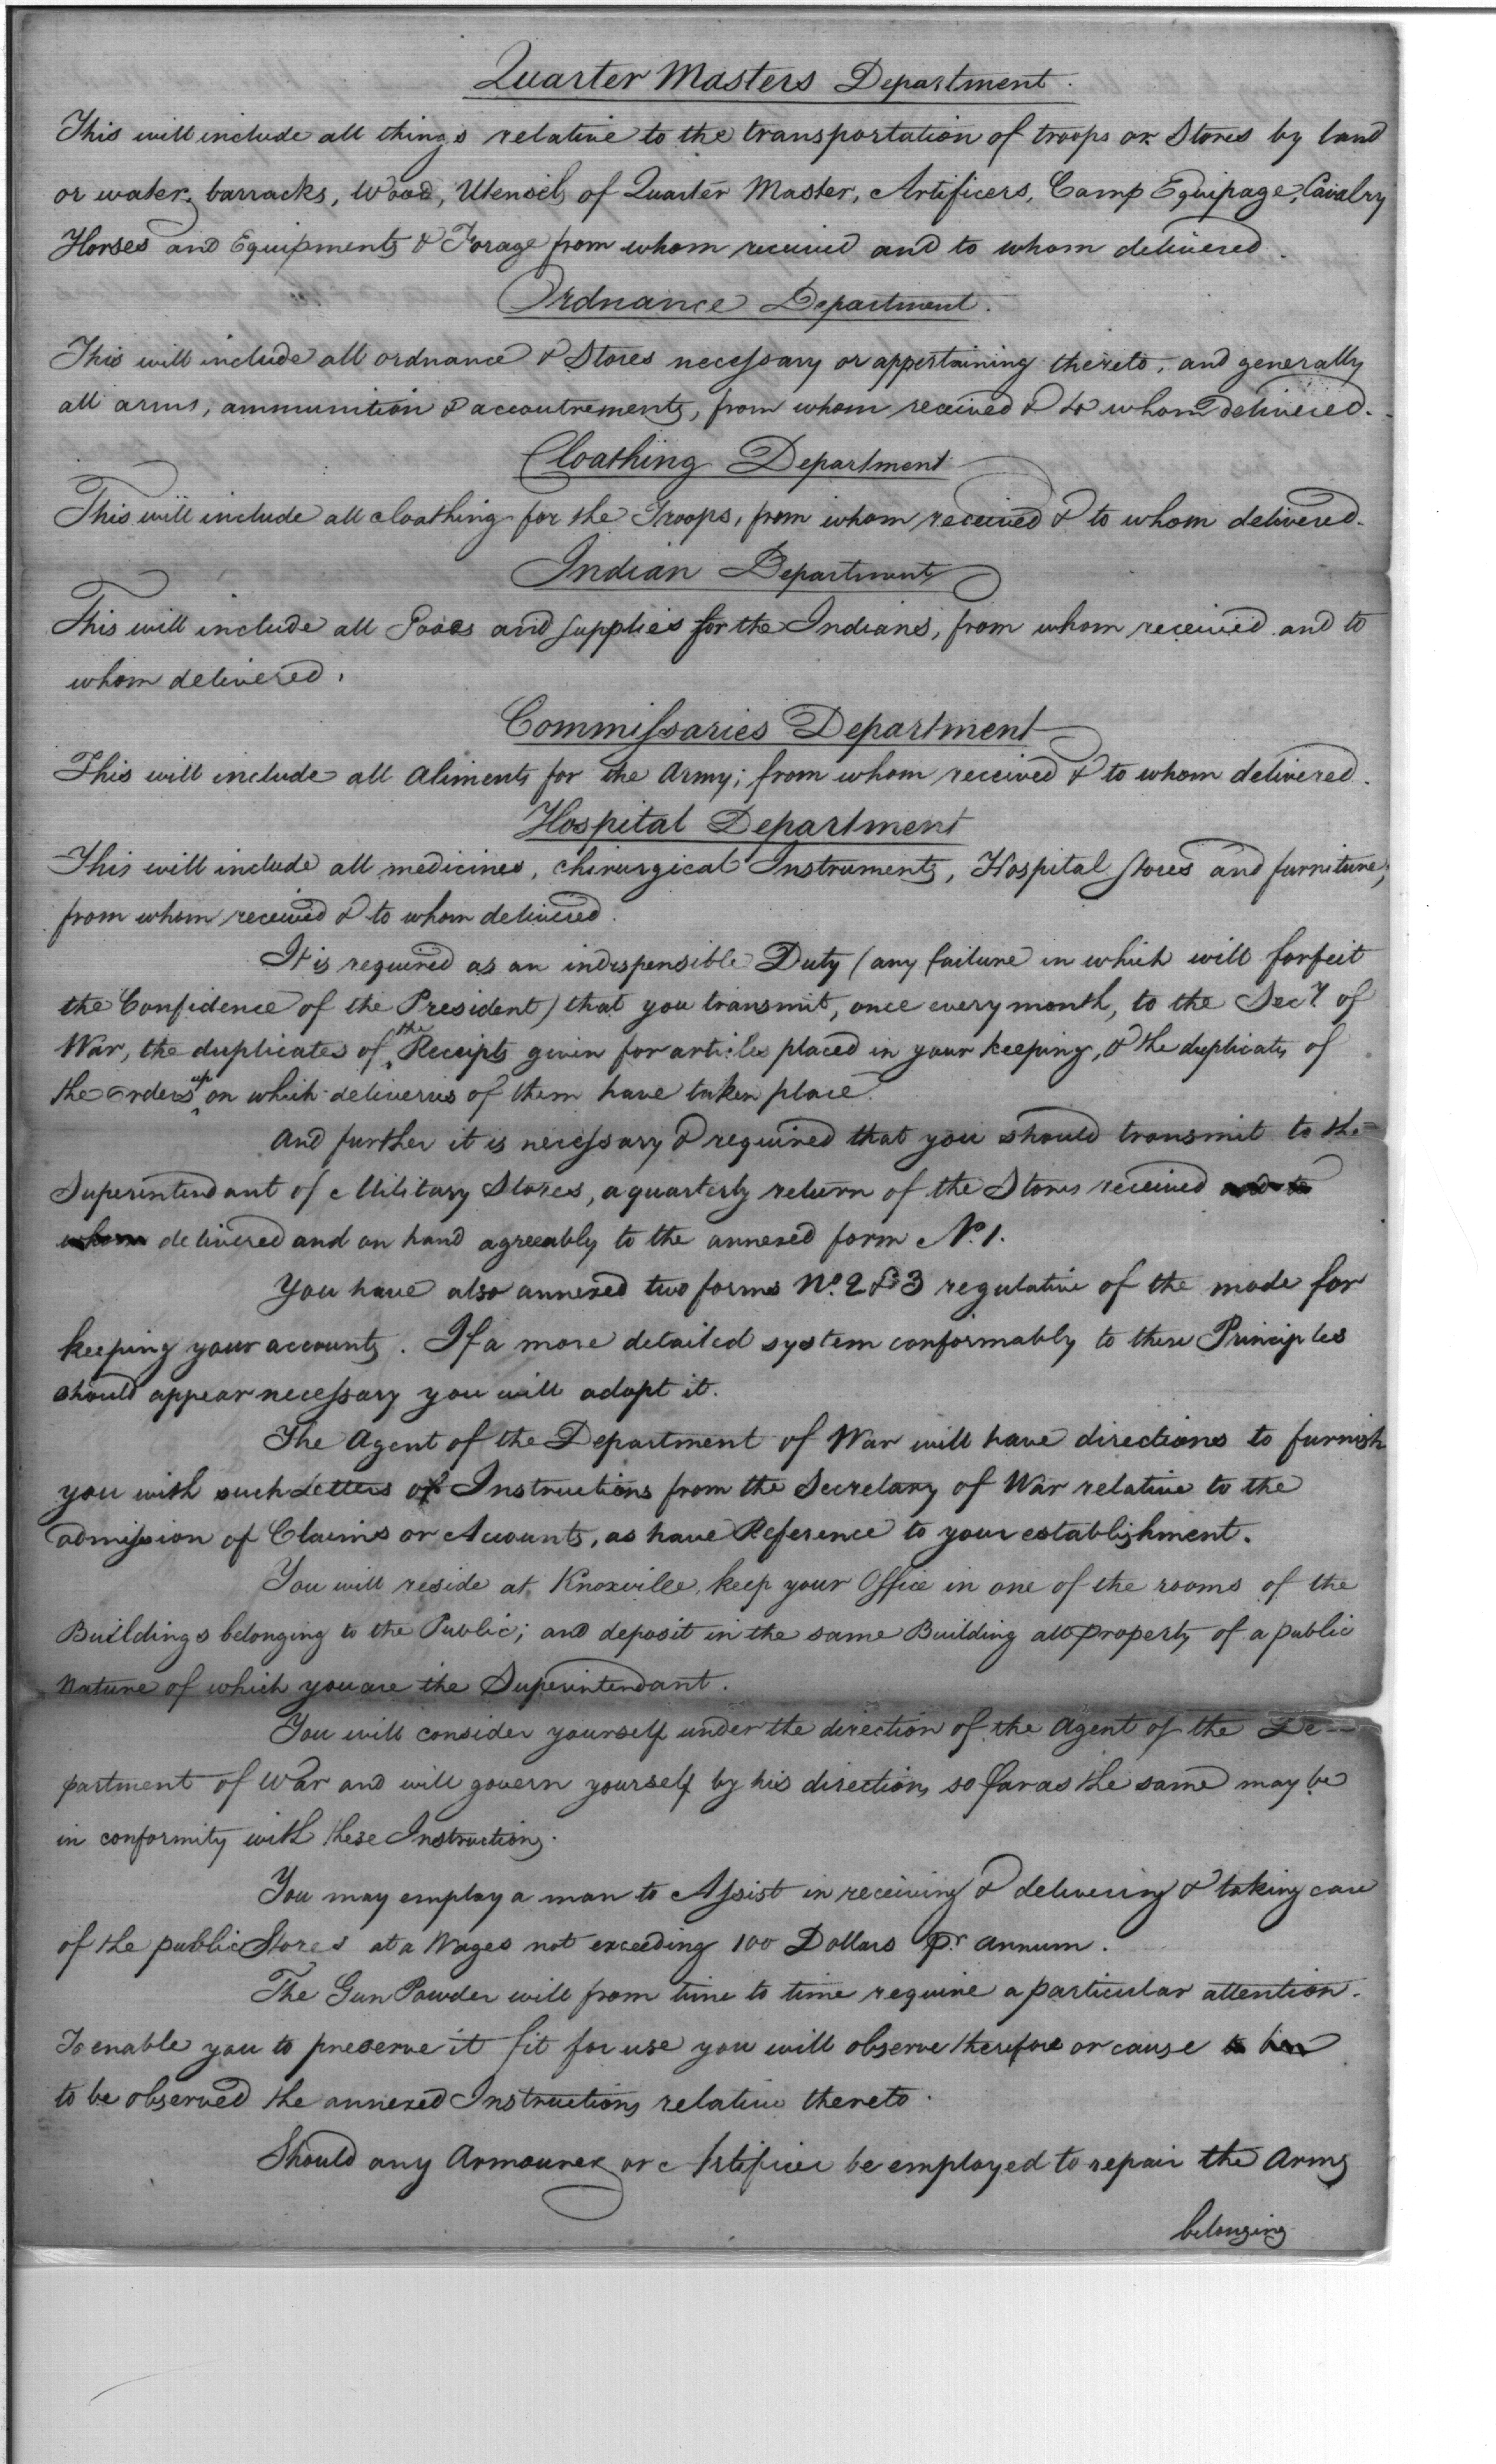 Quarter Masters Department.
This will include all things relative to the transportation of troops or Stores by land
or water, barracks, Wood, Utensils of Quarter Master, Artificers, Camp Equipage, Cavalry
Horses and Equipments & Forage from whom received and to whom delivered.
Ordnance Department.
This will include all ordnance & Stores necessary or appertaining thereto, and generally
all arms, ammunition & accoutrements, from whom received & to whom delivered.
Cloathing Department
This will include all cloathing for the Troops, from whom received & to whom delivered.
Indian Department
This will include all Goods and supplies for the Indians, from whom received and to
whom delivered.
Commissaries Department
This will include all aliments for the Army; from whom received & to whom delivered.
Hospital Department
This will include all medicines, chirurgical Instruments, Hospital stores and furniture,
from whom received & to whom delivered.
It is required as an indispensible Duty (any failure in which will forfeit
the Confidence of the President) that you transmit, once every month, to the Secy of
War, the duplicates of the Receipts given for articles placed in your keeping, & the duplicates of
the orders upon which deliveries of them have taken place.
And further it is necessary & required that you should transmit to the
Superintendant of Military Stores, a quarterly return of the Stores received and to
whom delivered and on hand agreeably to the annexed form No. 1.
You have also annexed two forms No. 2 & 3 regulative of the mode for
keeping your accounts. If a more detailed system conformably to these Principles
should appear necessary you will adopt it.
The Agent of the Department of War will have directions to furnish
you with such Letters of Instructions from the Secretary of War relative to the
admission of Claims or Accounts, as have Reference to your establishment.
You will reside at Knoxville, keep your Office in one of the rooms of the
Buildings belonging to the Public; and deposit in the same Building all property of a public
Nature of which you are the Superintendant.
You will consider yourself under the direction of the Agent of the De-
partment of War and will govern yourself by his directions so far as the same may be
in conformity with these Instructions.
You may employ a man to Assist in receiving & delivering & taking care
of the public Stores at a Wages not exceeding 100 Dollars pr. annum.
The Gun Powder will from time to time require a particular attention.
To enable you to preserve it fit for use you will observe therefore or cause to be
to be observed the annexed Instructions relative thereto.
Should any Armourer or Artificer be employed to repair the Arms
belonging